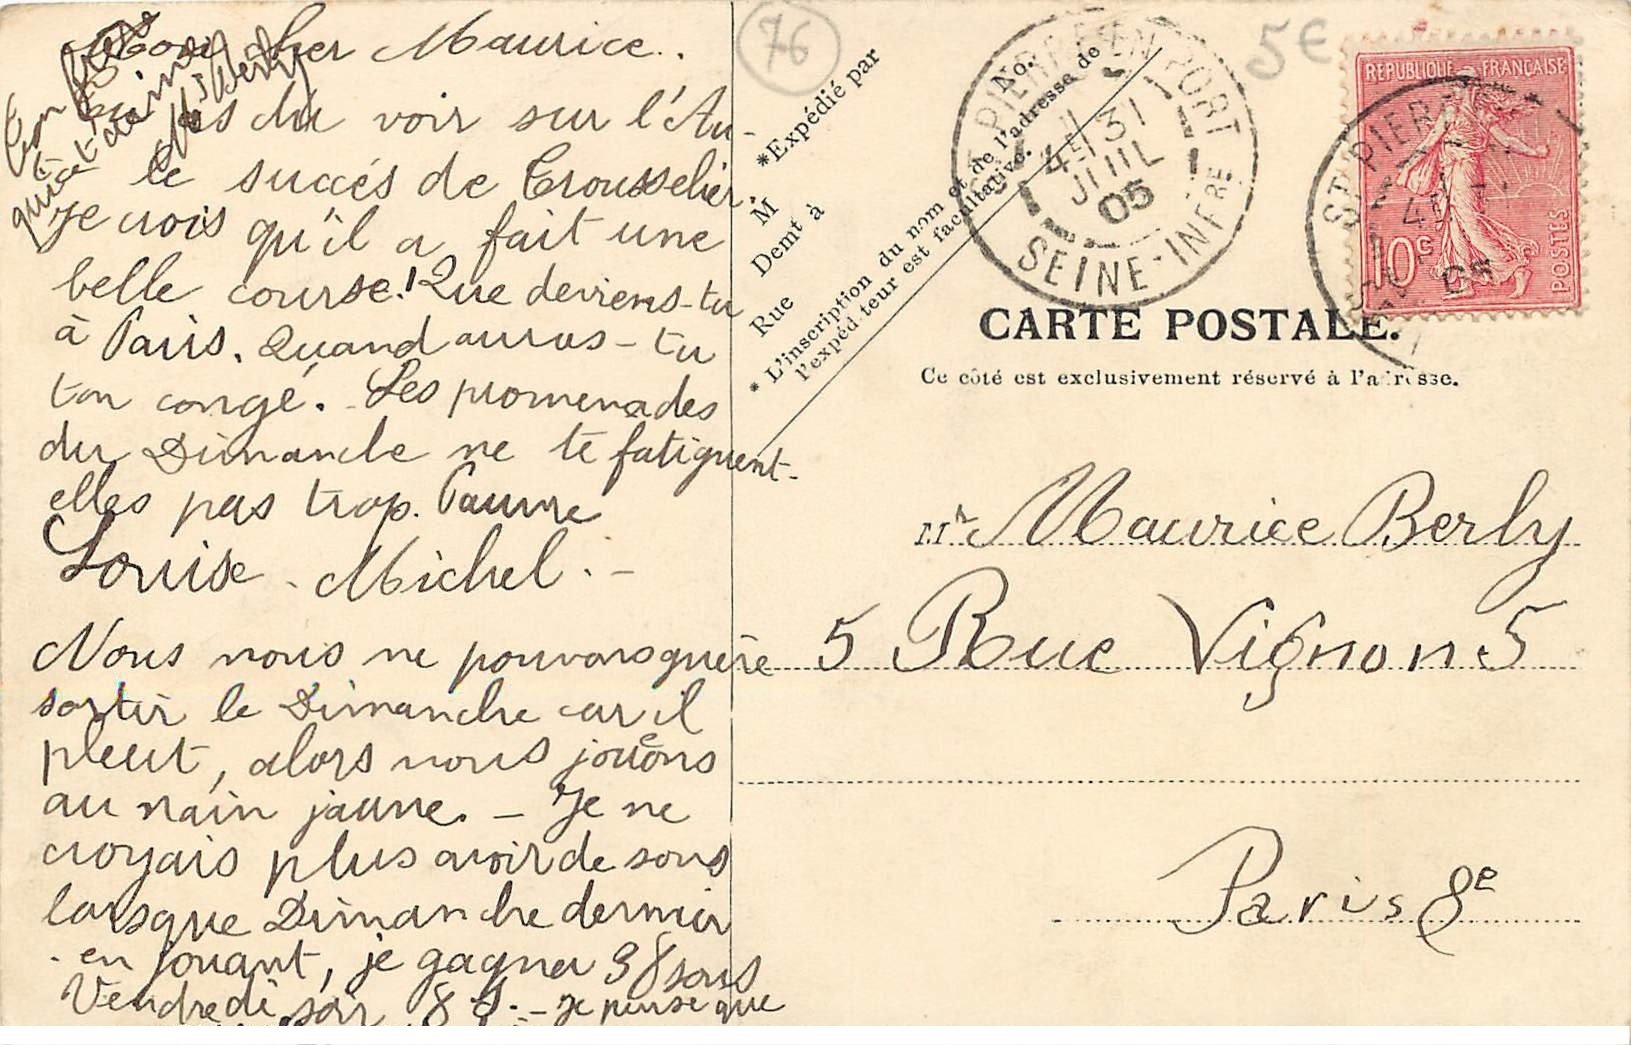 Mon cher Maurice.
as du voir sur l'Au-
le succés de Trousselier.
Je crois qu'il a fait une
belle course! Que deviens-tu
à Paris. Quand auras-tu
ton congé. - Les promenades
du Dimanche ne te fatiguent-
elles pas trop. Pauvre
Louise-Michel. -
Nous nous ne pouvons guère
sortir le Dimanche car il
pleut, alors nous jouons
au nain jaune. - Je ne
croyais plus avoir de sous
lorsque Dimanche dernier
en jouant, je gagner 38 sous
Vendredi soir 8 - Je pense que
76
5€
*Expédié par
M
Demt à
Rue
No.
* L'inscription du nom et de l'adresse de
l'expéditeur est facultative.
ST PIERRE EN PORT
31
JUIL
05
SEINE-INFRE
REPUBLIQUE FRANÇAISE
10c
POSTES
ST PIER
05
CARTE POSTALE.
Ce côté est exclusivement réservé à l'adresse.
Mr Maurice Berly
5 Rue Vignon 5
Paris 8e